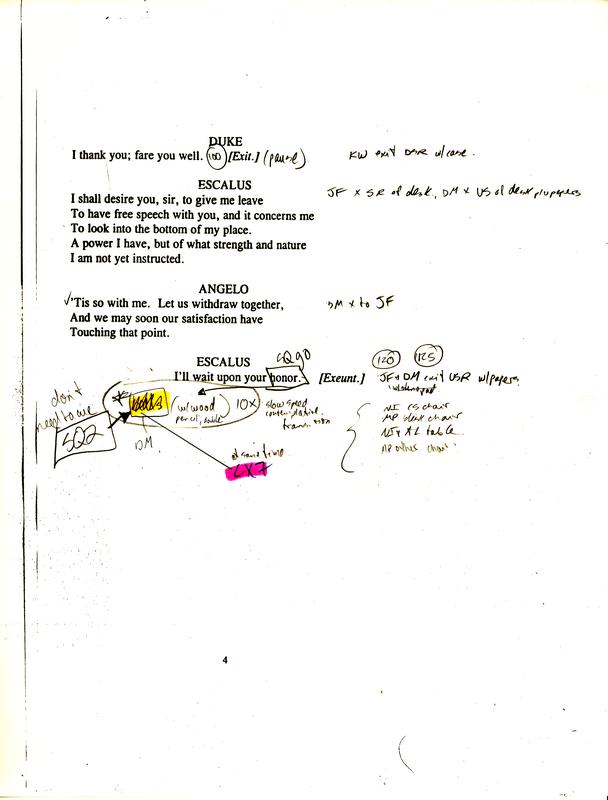 DUKE
I thank you; fare you well. (100) [Exit.] (pause)
KW exit DSR w/case.
ESCALUS
I shall desire you, sir, to give me leave
JF x SR of desk, DM x US of desk p/u papers
To have free speech with you, and it concerns me
To look into the bottom of my place.
A power I have, but of what strength and nature
I am not yet instructed.
ANGELO
✓'Tis so with me. Let us withdraw together,
DM x to JF
And we may soon our satisfaction have
Touching that point.
ESCALUS
SQ go
I'll wait upon your honor. [Exeunt.]
120 125
JF + DM exit USR w/papers
don't
need to use
SQ2
(w/wood
pencil, double)
10x
slow speed
contemplative
transition
DM
at same time
LX7
NI CS chair
MP desk chair
NI + AL table
MP other chair
4